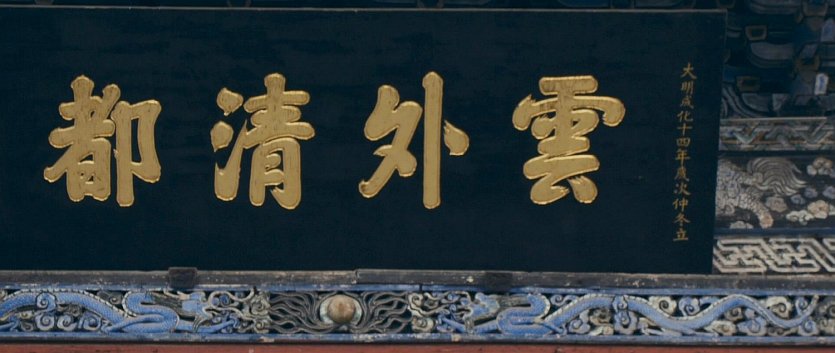 大明成化十四年歲次仲冬立
雲外清都